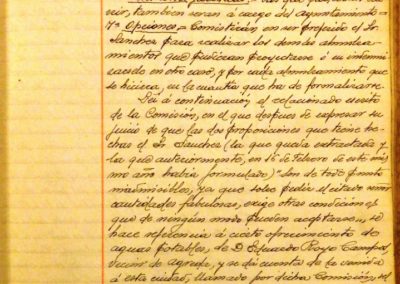 venir, tambien serán á cargo del ayuntamiento.=
7ª Opciones.= Consistirán en ser preferido el Sr.
Sanchez para realizar los demás alumbra-
mientos que pudieran proyectarse ó su indemni-
zación en otro caso, y por cada alumbramiento que
se hiciera, en la cuantía que ha de formalizarse.
Leí á continuación el relacionado escrito
de la Comisión, en el que despues de exponer su
juicio de que las dos proposiciones que tiene he-
chas el Sr. Sanchez (la que queda extractada y
la que anteriormente, en 16 de Febrero de este mis-
mo año había formulado) "son de todo punto
inadmisibles, ya que sobre pedir el citado señor
cantidades fabulosas, exige otras condiciones
que de ningún modo pueden aceptarse", se
hace referencia á cierto ofrecimiento de
aguas potables, de D. Eduardo Royo
vecino de Agreda, y se dá cuenta de la venida
á esta ciudad, llamado por dicha Comisión, del